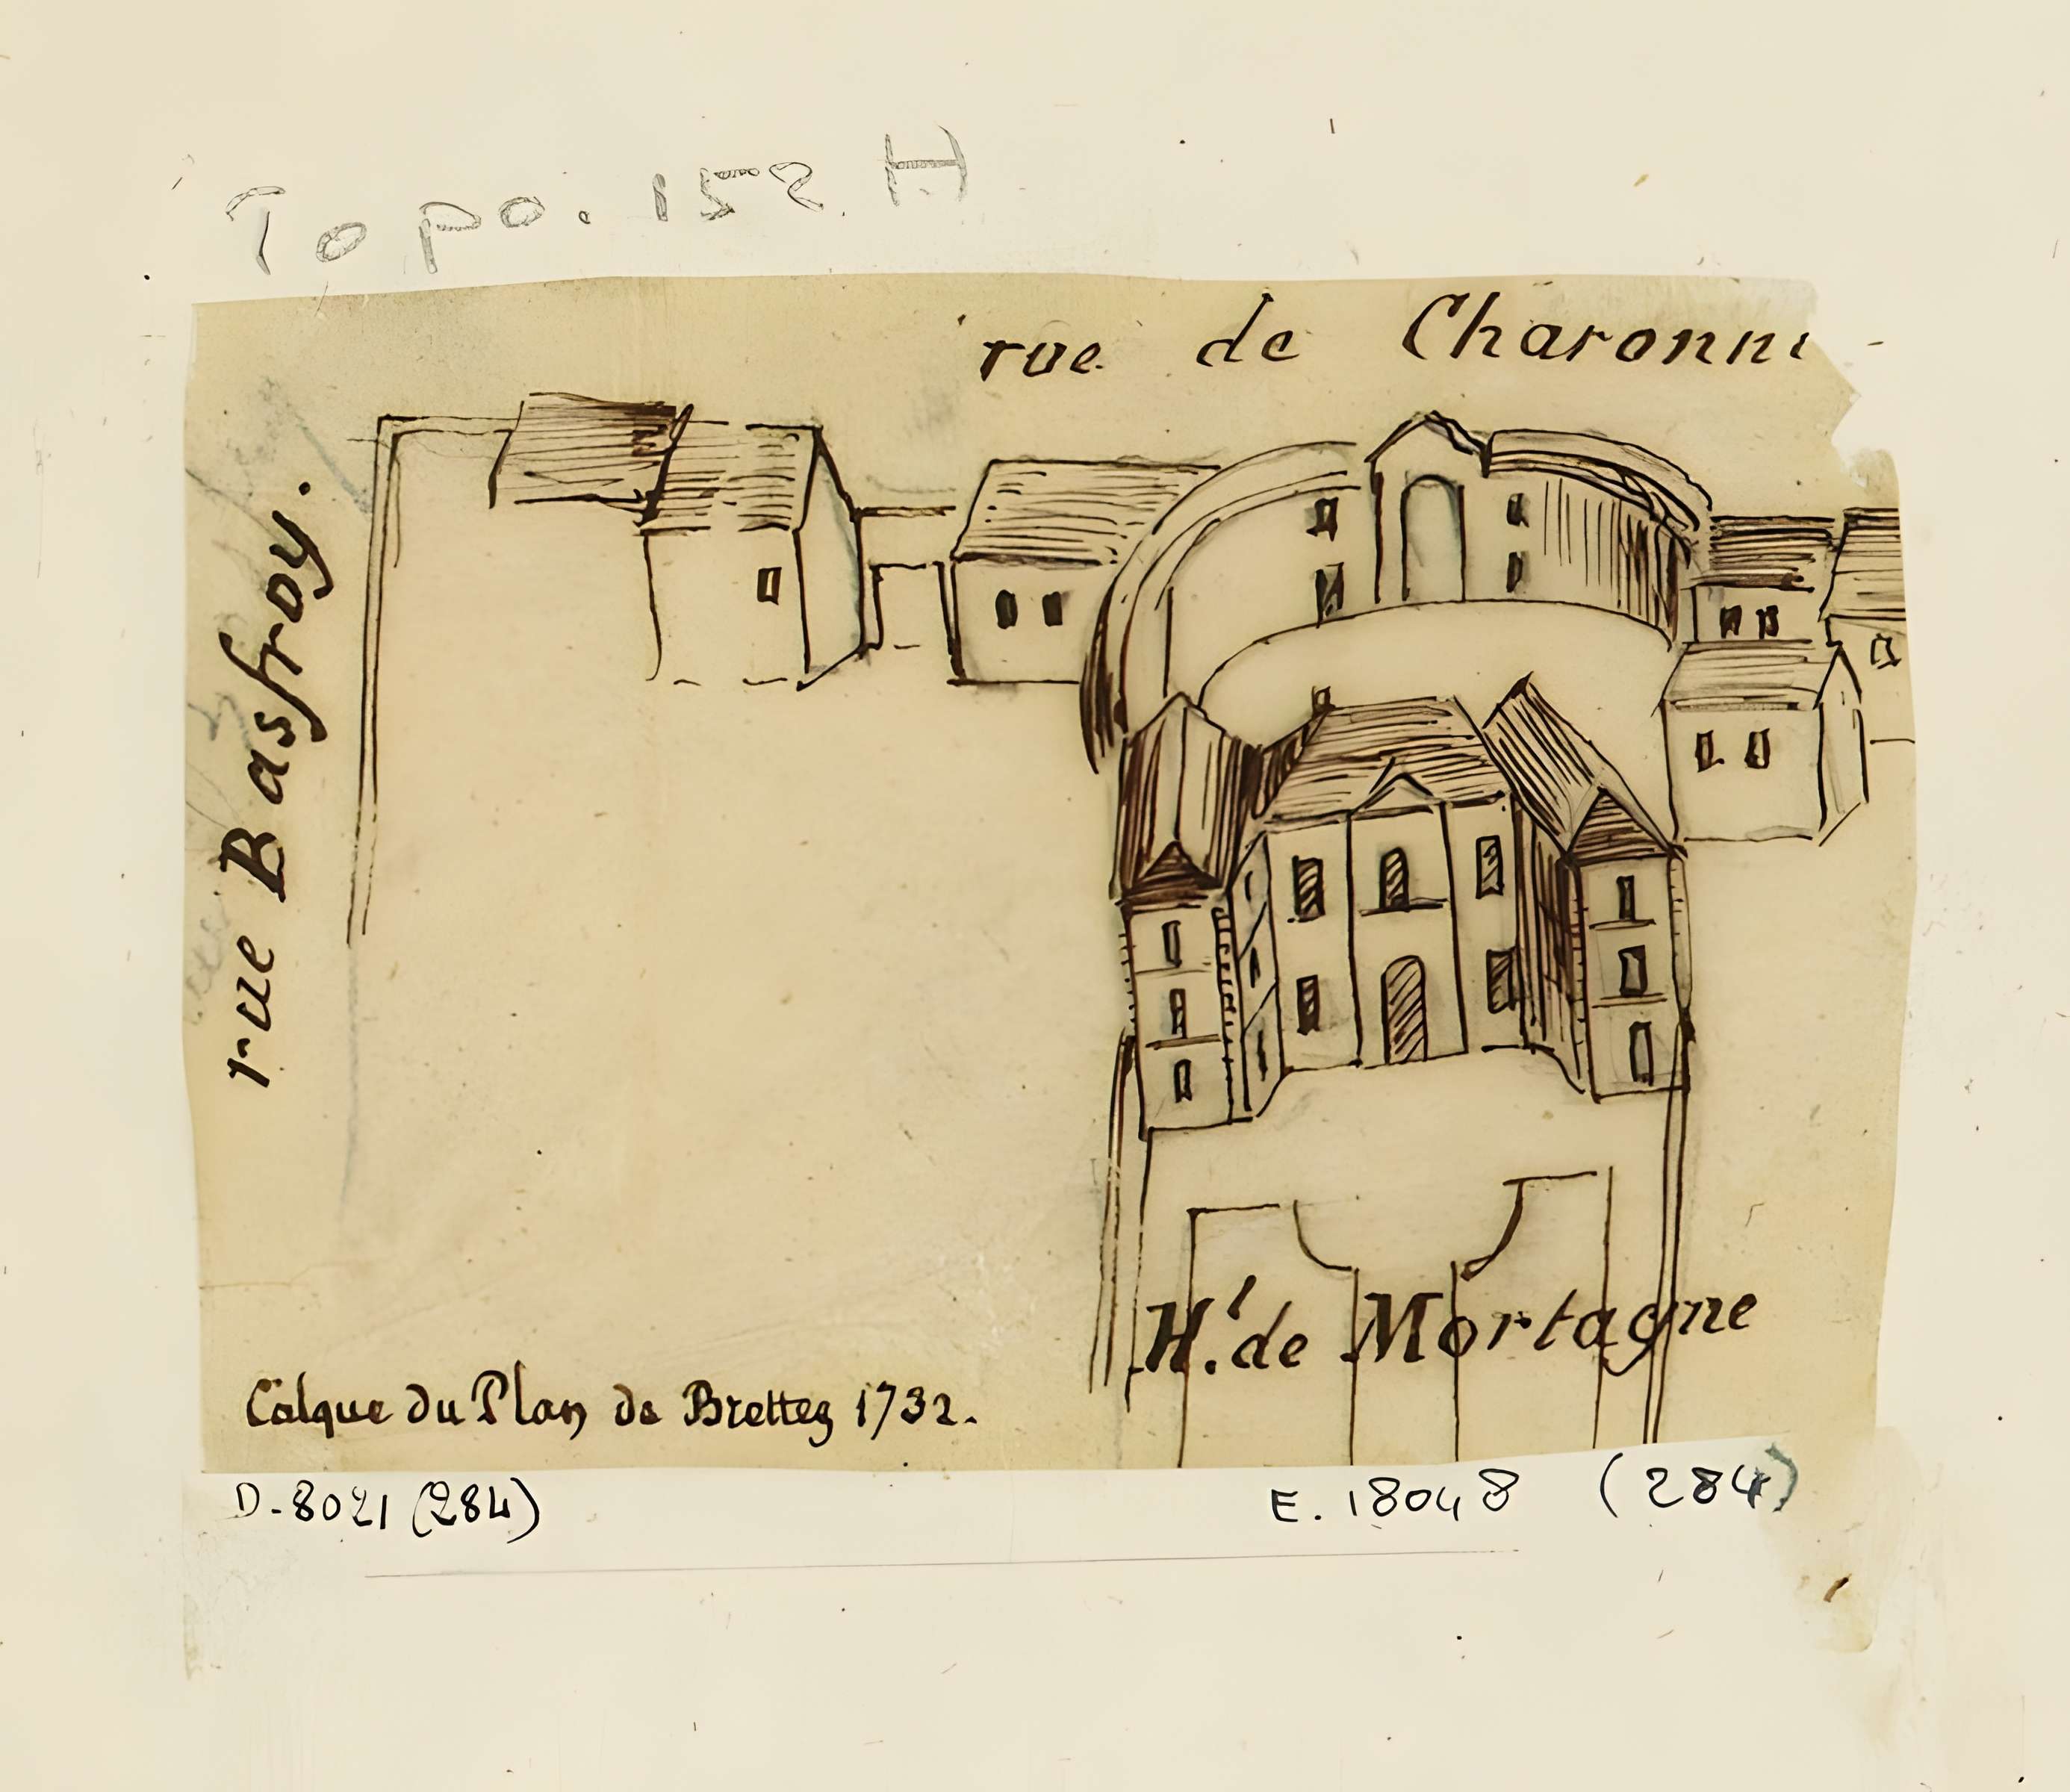 Topo. 155 H
rue de Charonne
rue Basfroy.
Ht. de Mortagne
Calque du Plan de Brettez 1732.
D-8021 (284)
E. 18048 (284)